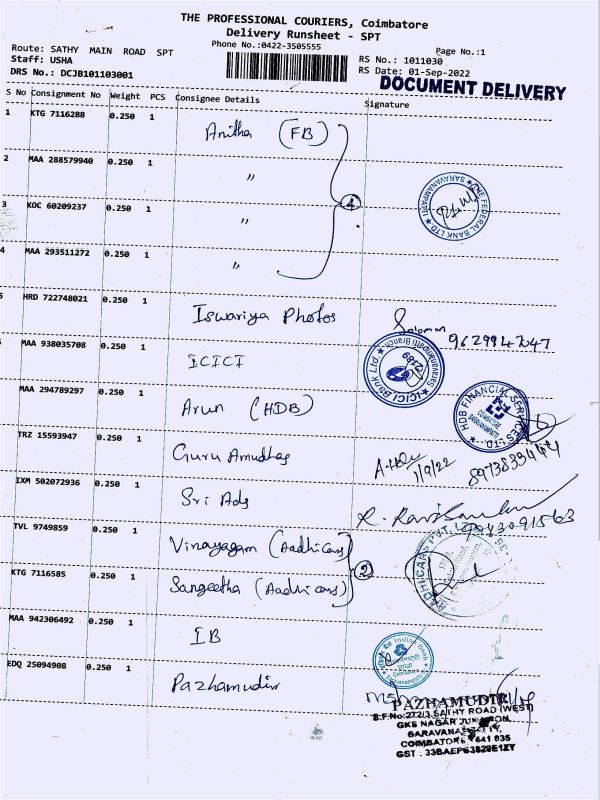 THE PROFESSIONAL COURIERS, Coimbatore
Delivery Runsheet - SPT
Phone No.:0422-3505555
Page No.:1
Route: SATHY MAIN ROAD SPT
Staff: USHA
DRS No.: DCJB101103001
RS No.: 1011030
RS Date: 01-Sep-2022
DOCUMENT DELIVERY
S No Consignment No Weight PCS Consignee Details Signature
1 KTG 7116288 0.250 1 Anitha (FB)
2 MAA 288579940 0.250 1 "
3 KOC 60209237 0.250 1 "
4 MAA 293511272 0.250 1 "
4
THE FEDERAL BANK LTD ★ SARAVANAMPATTI ★
HRD 722748021 0.250 1 Iswariya Photos Solomon
9629947047
MAA 938035708 0.250 1 ICICI
★ ICICI Bank Ltd. ★ Saravanampatti Branch
MAA 294789297 0.250 1 Arun (HDB)
★ HDB FINANCIAL SERVICES LTD
TRZ 15593947 0.250 1 Guru Amudhas
1/9/22
IXM 502072936 0.250 1 Sri Ads
TVL 9749859 0.250 1 Vinayagam (Aadhi cars)
KTG 7116585 0.250 1 Sangeetha (Aadhi cars)
2
AADHI CARS PVT. LTD.
MAA 942306492 0.250 1 IB
Indian Bank
EDQ 25094908 0.250 1 Pazhamudir
PAZHAMUDIR
S.F.No:272/3 SATHY ROAD (WEST)
GKS NAGAR JUNCTION,
SARAVANAMPATTY,
COIMBATORE - 641 035